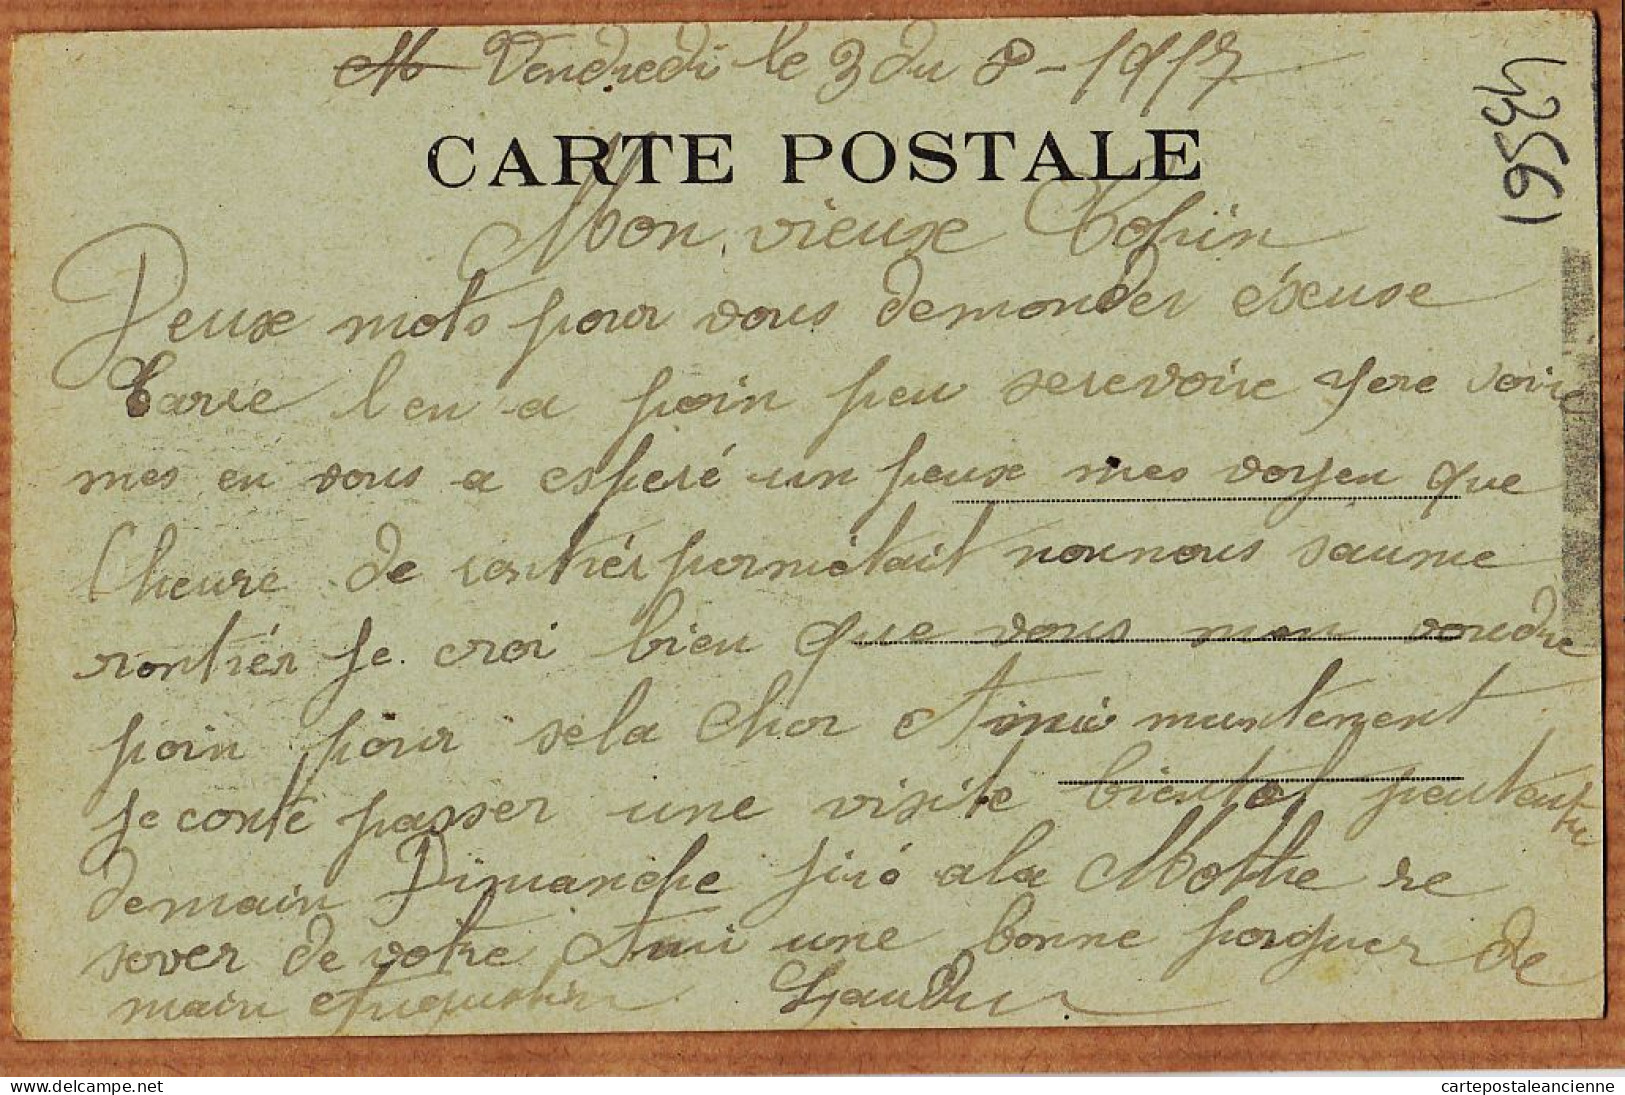 Vendredi le 3 du 8 - 1917
43561
CARTE POSTALE
Mon vieuxe Copin
Deuxe mots pour vous demander éxcuse
l en a poin peu serevoire yere soir
mes en vous a esperé un peux mes voyen que
l heure de rentrér permétait nounous saume
rontrér je croi bien que vous mon voudre
poin pour sela Cher Ami muntenent
je conte passer une visite bientot peutêutre
demain Dimanche jiré a la Mothe re
sover de votre Ami une bonne poignér de
main Augustin
cartepostaleancienne